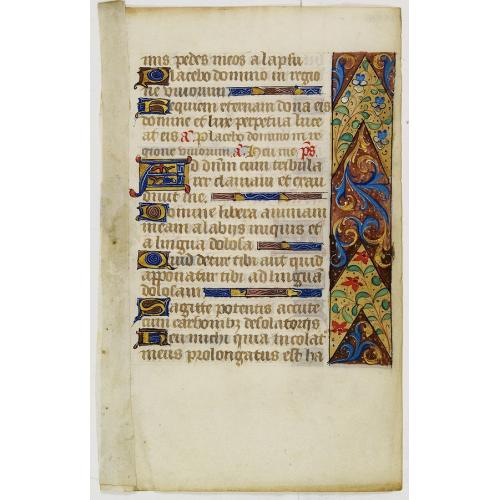 mis pedes meos a lapsu
Placebo domino in regio
ne viuorum
Requiem eternam dona eis
domine et lux perpetua luce
at eis a. Placebo domino in re
gione viuorum. a. Heu me. ps.
Ad dnm cum tribula
rer clamaui et exau
diuit me.
Domine libera animam
meam a labijs iniquis et
a lingua dolosa.
Quid detur tibi aut quid
apponatur tibi ad lingua
dolosam
Sagitte potentis accute
cum carbonibz desolatorijs
Heu michi quia incolat
meus prolongatus est ha